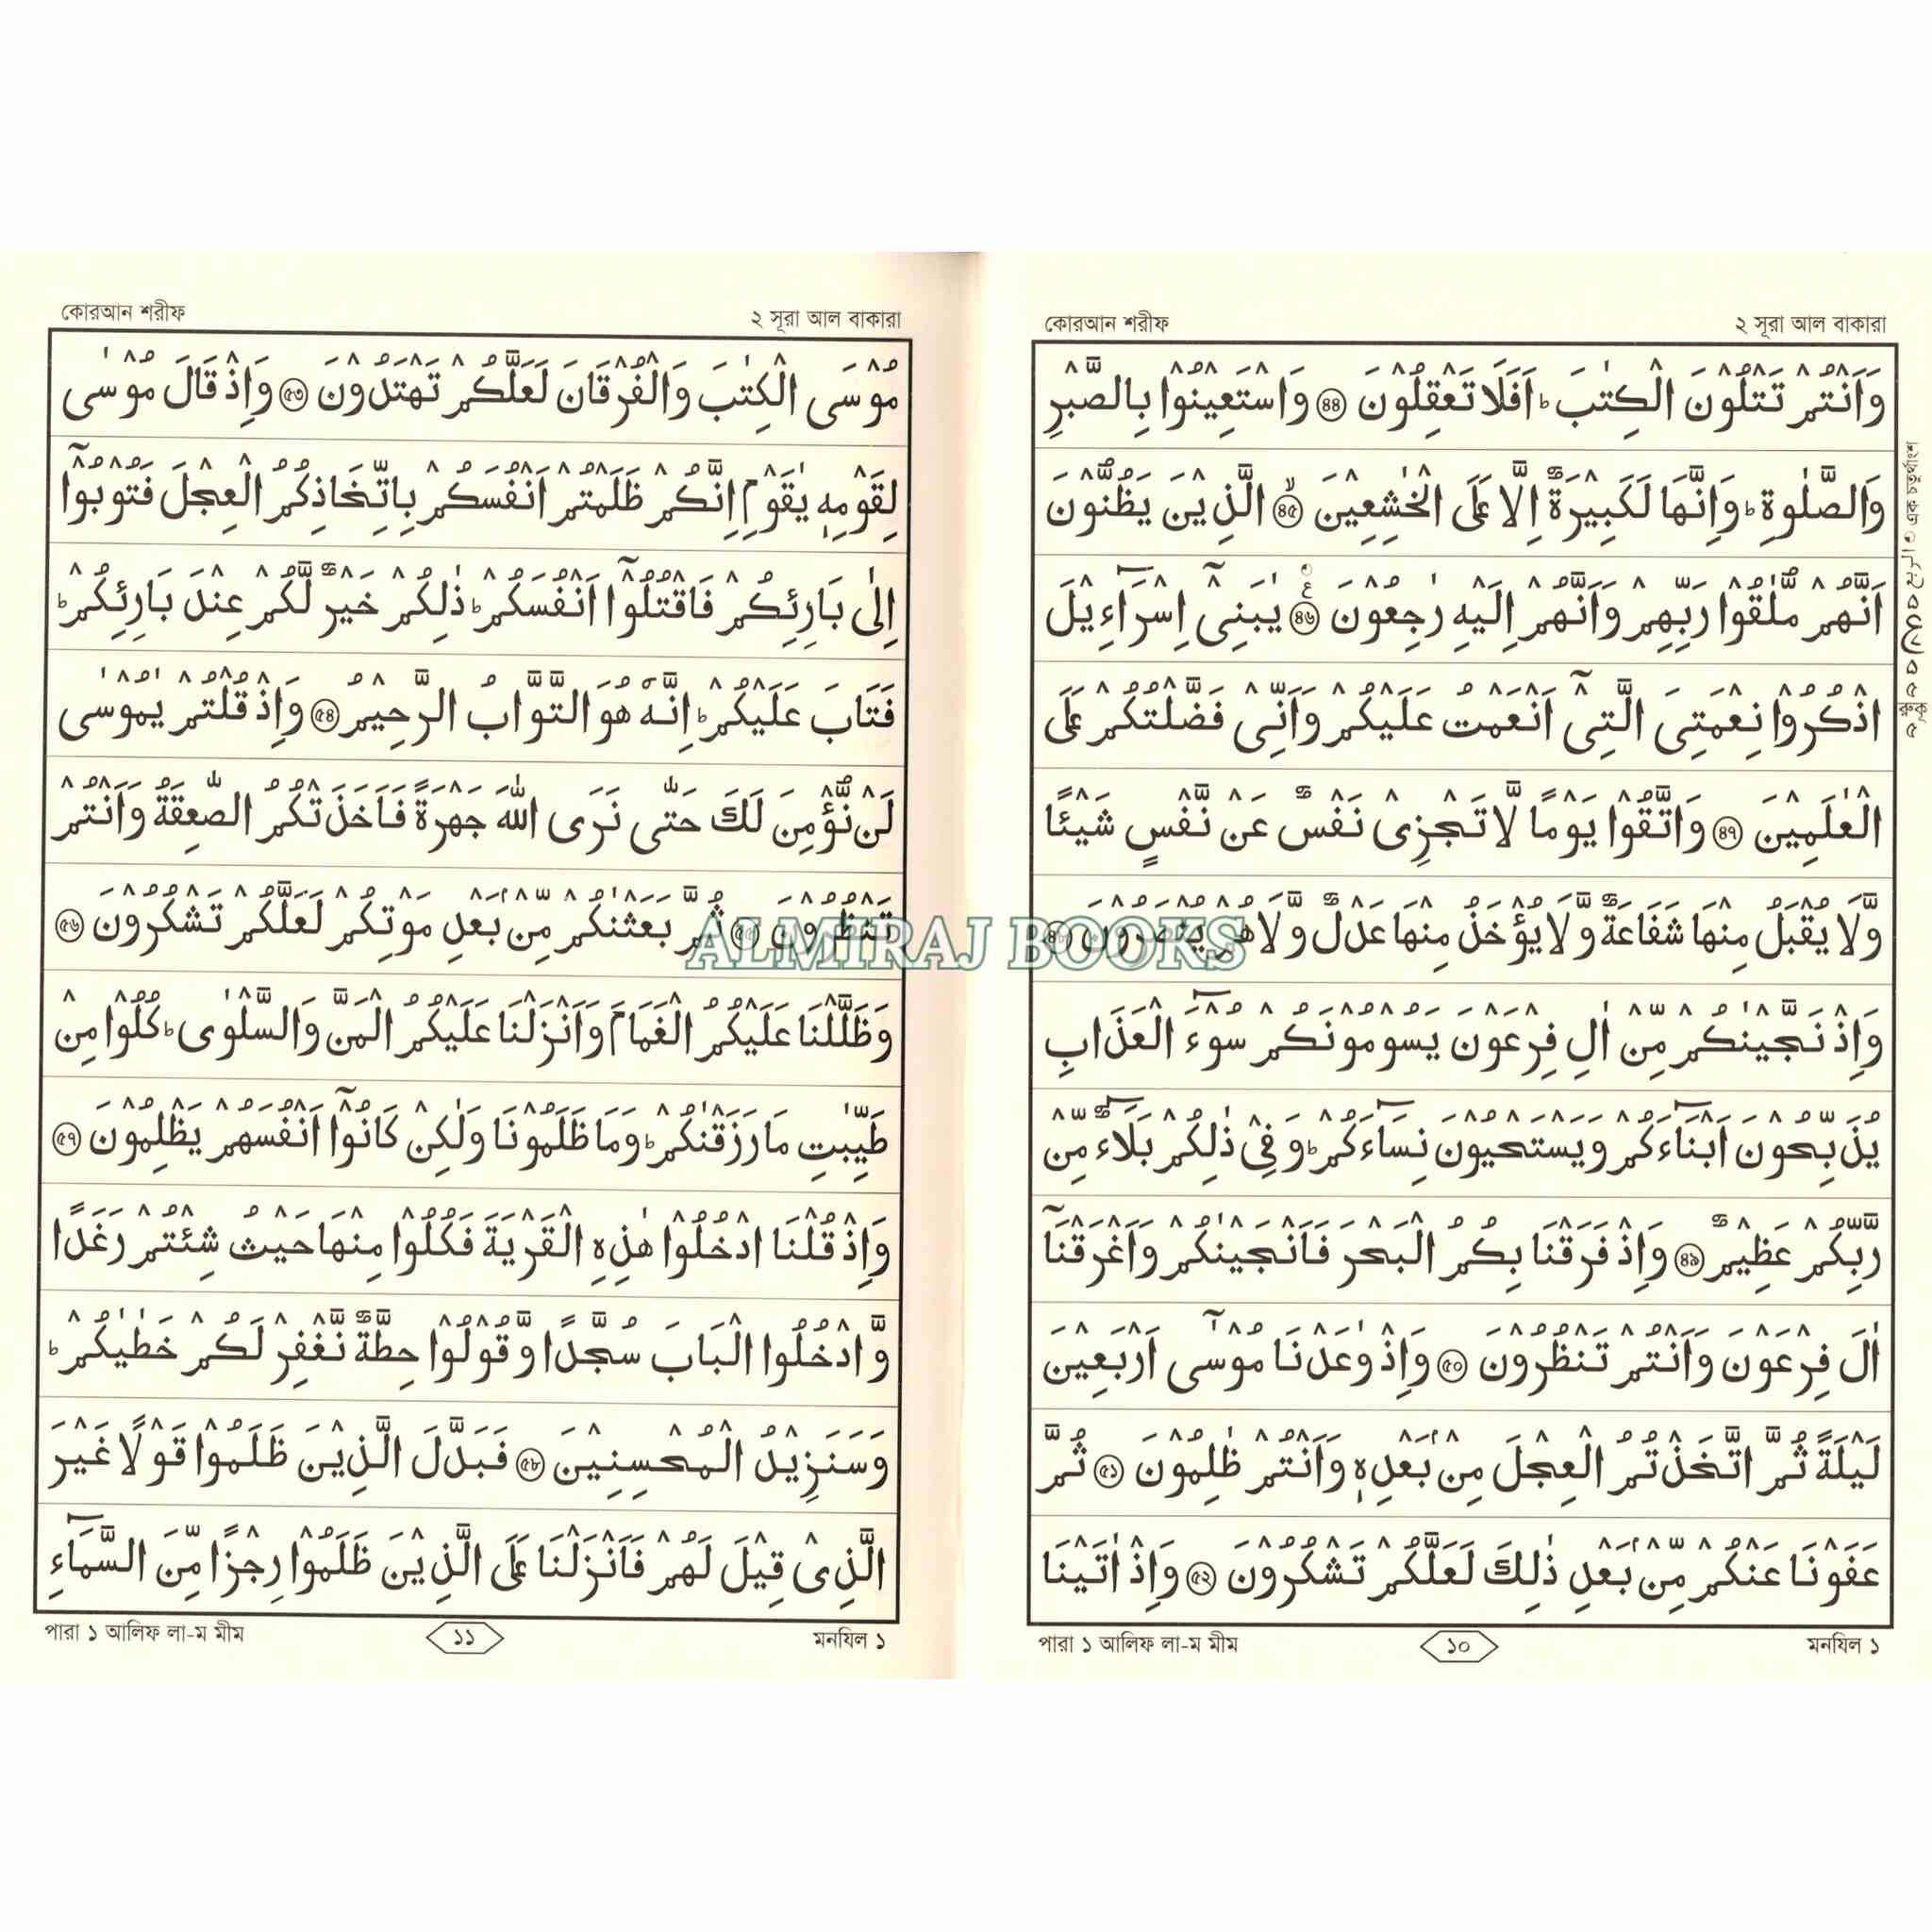 কোরআন শরীফ
২ সূরা আল বাকারা
وَاَنْتُمْ تَتْلُوْنَ الْكِتٰبَ ؕ اَفَلَا تَعْقِلُوْنَ ﴿৪৪﴾ وَاسْتَعِيْنُوْا بِالصَّبْرِ
وَالصَّلٰوةِ ؕ وَاِنَّهَا لَكَبِيْرَةٌ اِلَّا عَلَى الْخٰشِعِيْنَ ﴿৪৫﴾ الَّذِيْنَ يَظُنُّوْنَ
اَنَّهُمْ مُّلٰقُوْا رَبِّهِمْ وَاَنَّهُمْ اِلَيْهِ رٰجِعُوْنَ ﴿৪৬﴾ يٰبَنِىْٓ اِسْرَآءِيْلَ
اذْكُرُوْا نِعْمَتِىَ الَّتِىْٓ اَنْعَمْتُ عَلَيْكُمْ وَاَنِّىْ فَضَّلْتُكُمْ عَلَى
الْعٰلَمِيْنَ ﴿৪৭﴾ وَاتَّقُوْا يَوْمًا لَّا تَجْزِىْ نَفْسٌ عَنْ نَّفْسٍ شَيْئًا
وَّلَا يُقْبَلُ مِنْهَا شَفَاعَةٌ وَّلَا يُؤْخَذُ مِنْهَا عَدْلٌ وَّلَا هُمْ يُنْصَرُوْنَ ﴿৪৮﴾
وَاِذْ نَجَّيْنٰكُمْ مِّنْ اٰلِ فِرْعَوْنَ يَسُوْمُوْنَكُمْ سُوْٓءَ الْعَذَابِ
يُذَبِّحُوْنَ اَبْنَآءَكُمْ وَيَسْتَحْيُوْنَ نِسَآءَكُمْ ؕ وَفِىْ ذٰلِكُمْ بَلَآءٌ مِّنْ
رَّبِّكُمْ عَظِيْمٌ ﴿৪৯﴾ وَاِذْ فَرَقْنَا بِكُمُ الْبَحْرَ فَاَنْجَيْنٰكُمْ وَاَغْرَقْنَآ
اٰلَ فِرْعَوْنَ وَاَنْتُمْ تَنْظُرُوْنَ ﴿৫০﴾ وَاِذْ وٰعَدْنَا مُوْسٰٓى اَرْبَعِيْنَ
لَيْلَةً ثُمَّ اتَّخَذْتُمُ الْعِجْلَ مِنْۢ بَعْدِهٖ وَاَنْتُمْ ظٰلِمُوْنَ ﴿৫১﴾ ثُمَّ
عَفَوْنَا عَنْكُمْ مِّنْۢ بَعْدِ ذٰلِكَ لَعَلَّكُمْ تَشْكُرُوْنَ ﴿৫২﴾ وَاِذْ اٰتَيْنَا
পারা ১ আলিফ লা-ম মীম
১০
মনযিল ১
কোরআন শরীফ
২ সূরা আল বাকারা
مُوْسَى الْكِتٰبَ وَالْفُرْقَانَ لَعَلَّكُمْ تَهْتَدُوْنَ ﴿৫৩﴾ وَاِذْ قَالَ مُوْسٰى
لِقَوْمِهٖ يٰقَوْمِ اِنَّكُمْ ظَلَمْتُمْ اَنْفُسَكُمْ بِاتِّخَاذِكُمُ الْعِجْلَ فَتُوْبُوْٓا
اِلٰى بَارِئِكُمْ فَاقْتُلُوْٓا اَنْفُسَكُمْ ؕ ذٰلِكُمْ خَيْرٌ لَّكُمْ عِنْدَ بَارِئِكُمْ ؕ
فَتَابَ عَلَيْكُمْ ؕ اِنَّهٗ هُوَ التَّوَّابُ الرَّحِيْمُ ﴿৫৪﴾ وَاِذْ قُلْتُمْ يٰمُوْسٰى
لَنْ نُّؤْمِنَ لَكَ حَتّٰى نَرَى اللّٰهَ جَهْرَةً فَاَخَذَتْكُمُ الصّٰعِقَةُ وَاَنْتُمْ
تَنْظُرُوْنَ ﴿৫৫﴾ ثُمَّ بَعَثْنٰكُمْ مِّنْۢ بَعْدِ مَوْتِكُمْ لَعَلَّكُمْ تَشْكُرُوْنَ ﴿৫৬﴾
وَظَلَّلْنَا عَلَيْكُمُ الْغَمَامَ وَاَنْزَلْنَا عَلَيْكُمُ الْمَنَّ وَالسَّلْوٰى ؕ كُلُوْا مِنْ
طَيِّبٰتِ مَا رَزَقْنٰكُمْ ؕ وَمَا ظَلَمُوْنَا وَلٰكِنْ كَانُوْٓا اَنْفُسَهُمْ يَظْلِمُوْنَ ﴿৫৭﴾
وَاِذْ قُلْنَا ادْخُلُوْا هٰذِهِ الْقَرْيَةَ فَكُلُوْا مِنْهَا حَيْثُ شِئْتُمْ رَغَدًا
وَّادْخُلُوا الْبَابَ سُجَّدًا وَّقُوْلُوْا حِطَّةٌ نَّغْفِرْ لَكُمْ خَطٰيٰكُمْ ؕ
وَسَنَزِيْدُ الْمُحْسِنِيْنَ ﴿৫৮﴾ فَبَدَّلَ الَّذِيْنَ ظَلَمُوْا قَوْلًا غَيْرَ
الَّذِىْ قِيْلَ لَهُمْ فَاَنْزَلْنَا عَلَى الَّذِيْنَ ظَلَمُوْا رِجْزًا مِّنَ السَّمَآءِ
পারা ১ আলিফ লা-ম মীম
১১
মনযিল ১
ALMIRAJ BOOKS